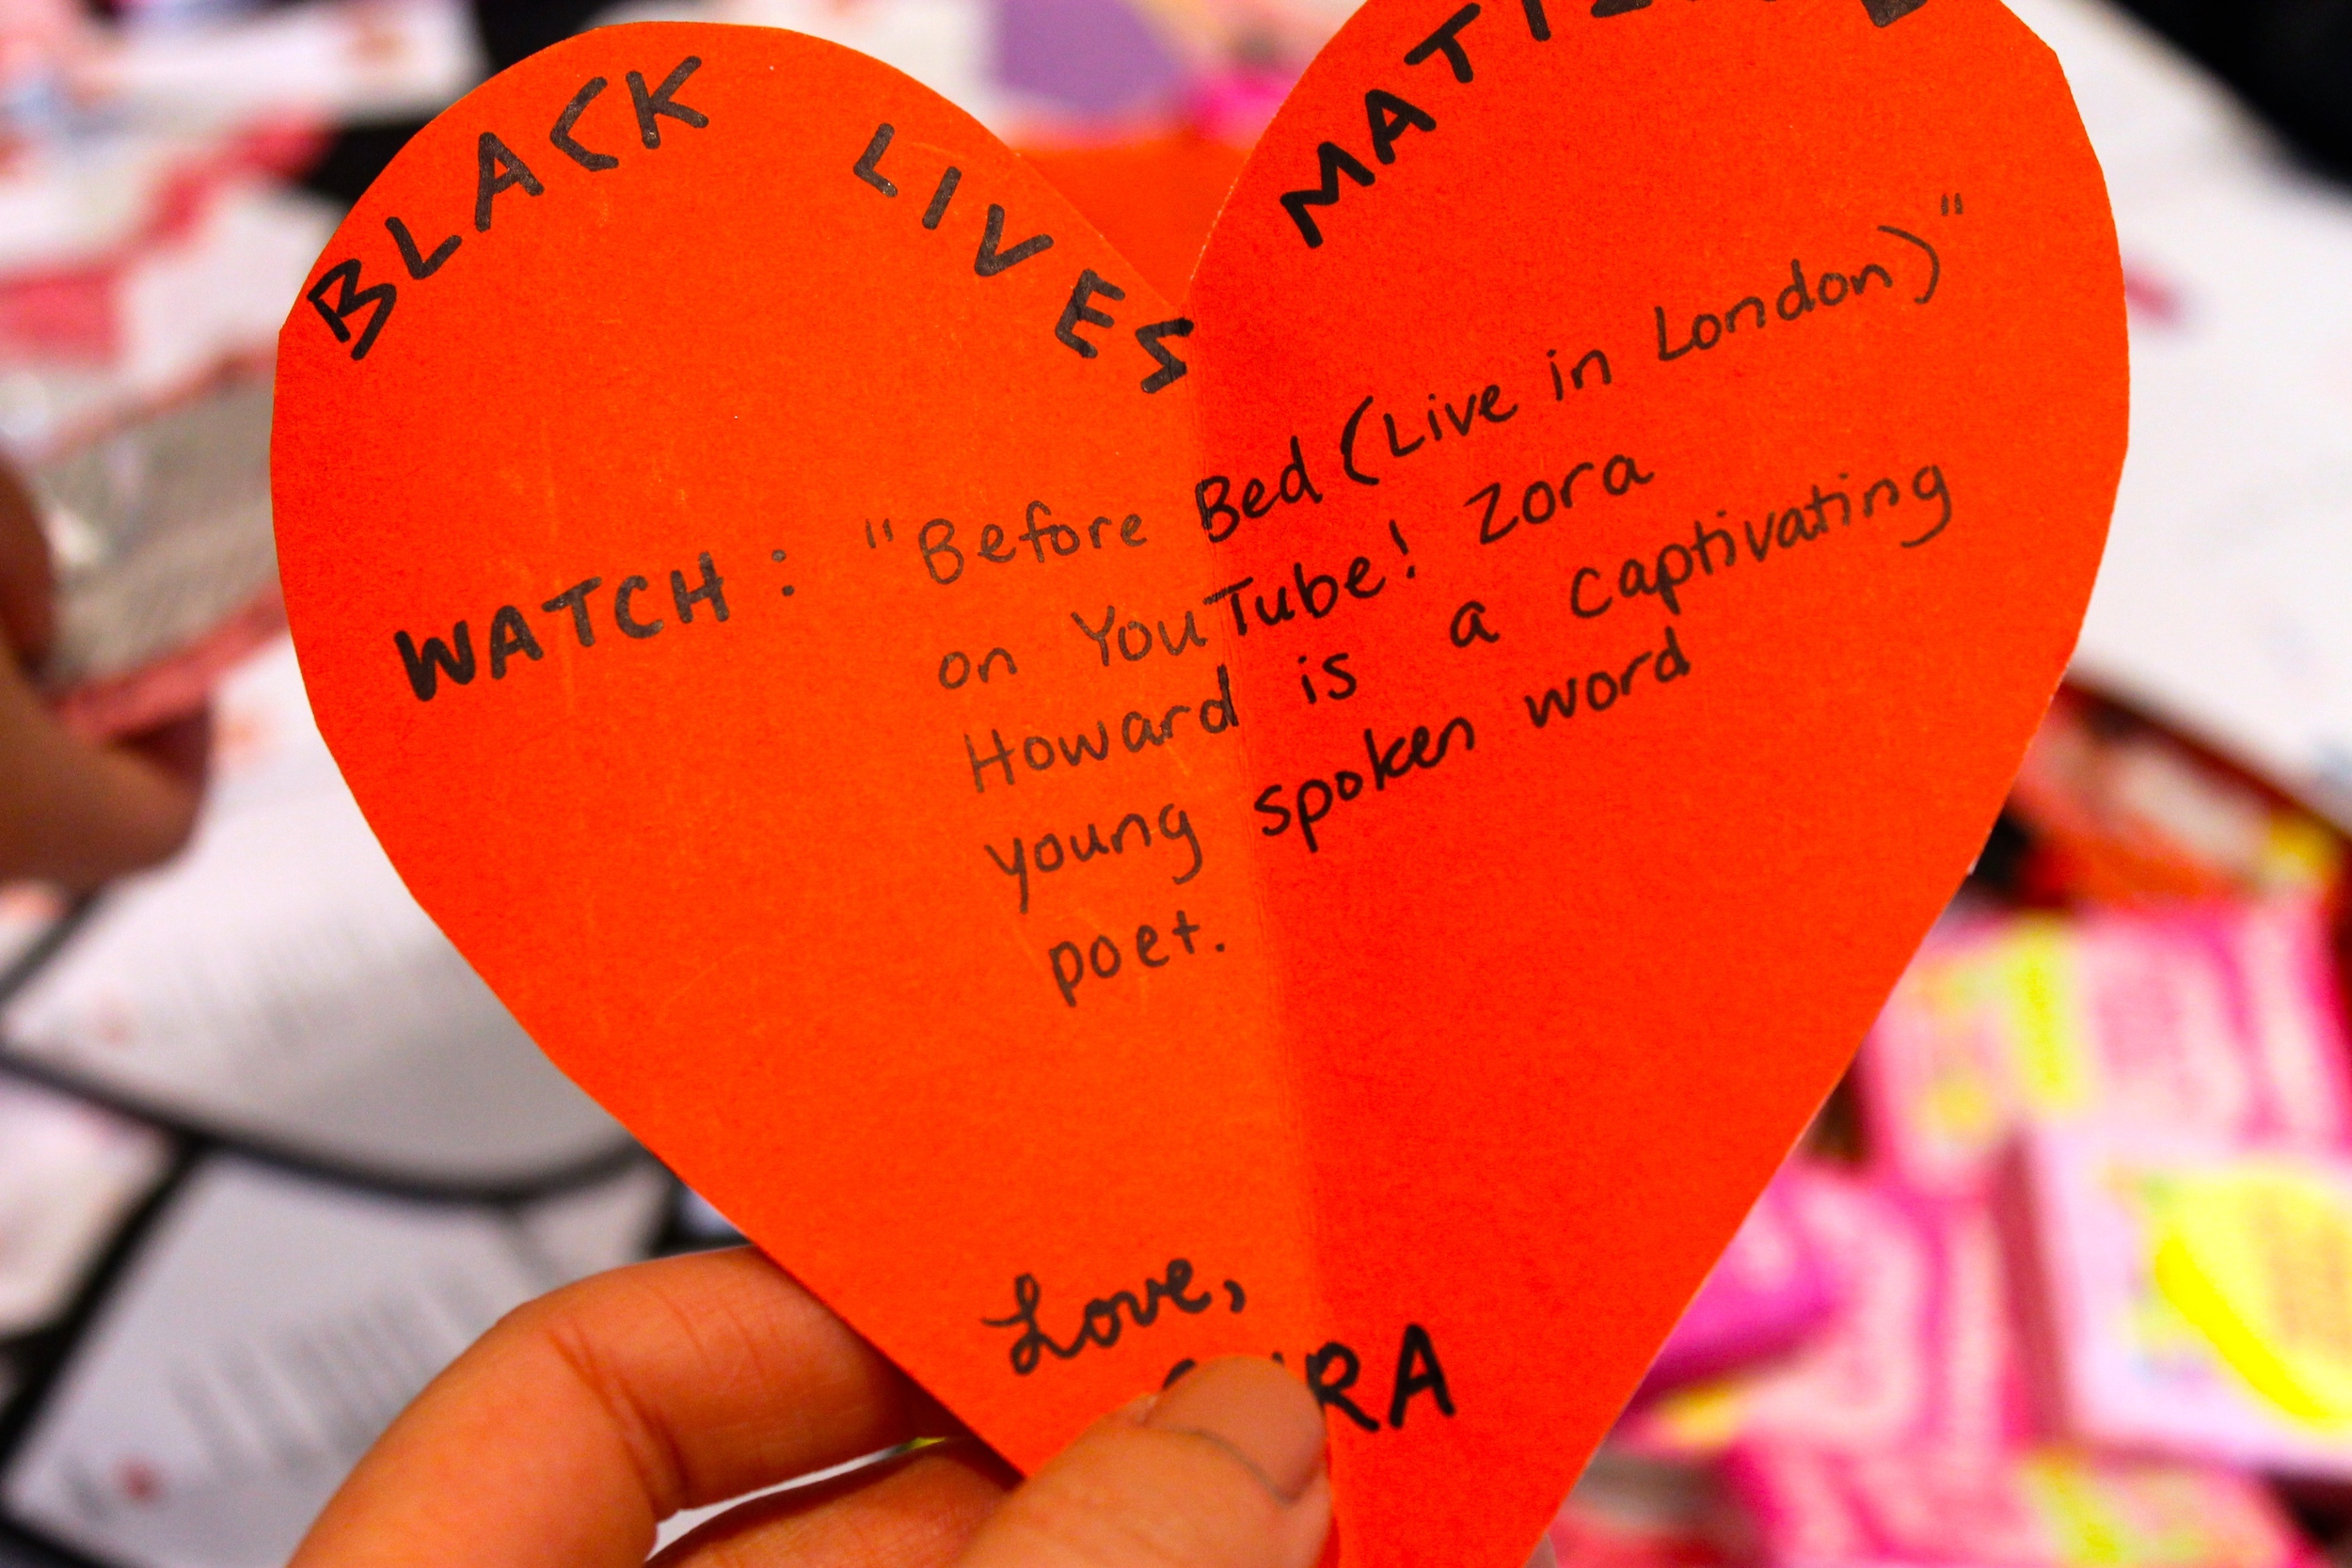 BLACK LIVES MATTER
WATCH : "Before Bed (Live in London)"
on YouTube! Zora
Howard is a captivating
young spoken word
poet.
Love,